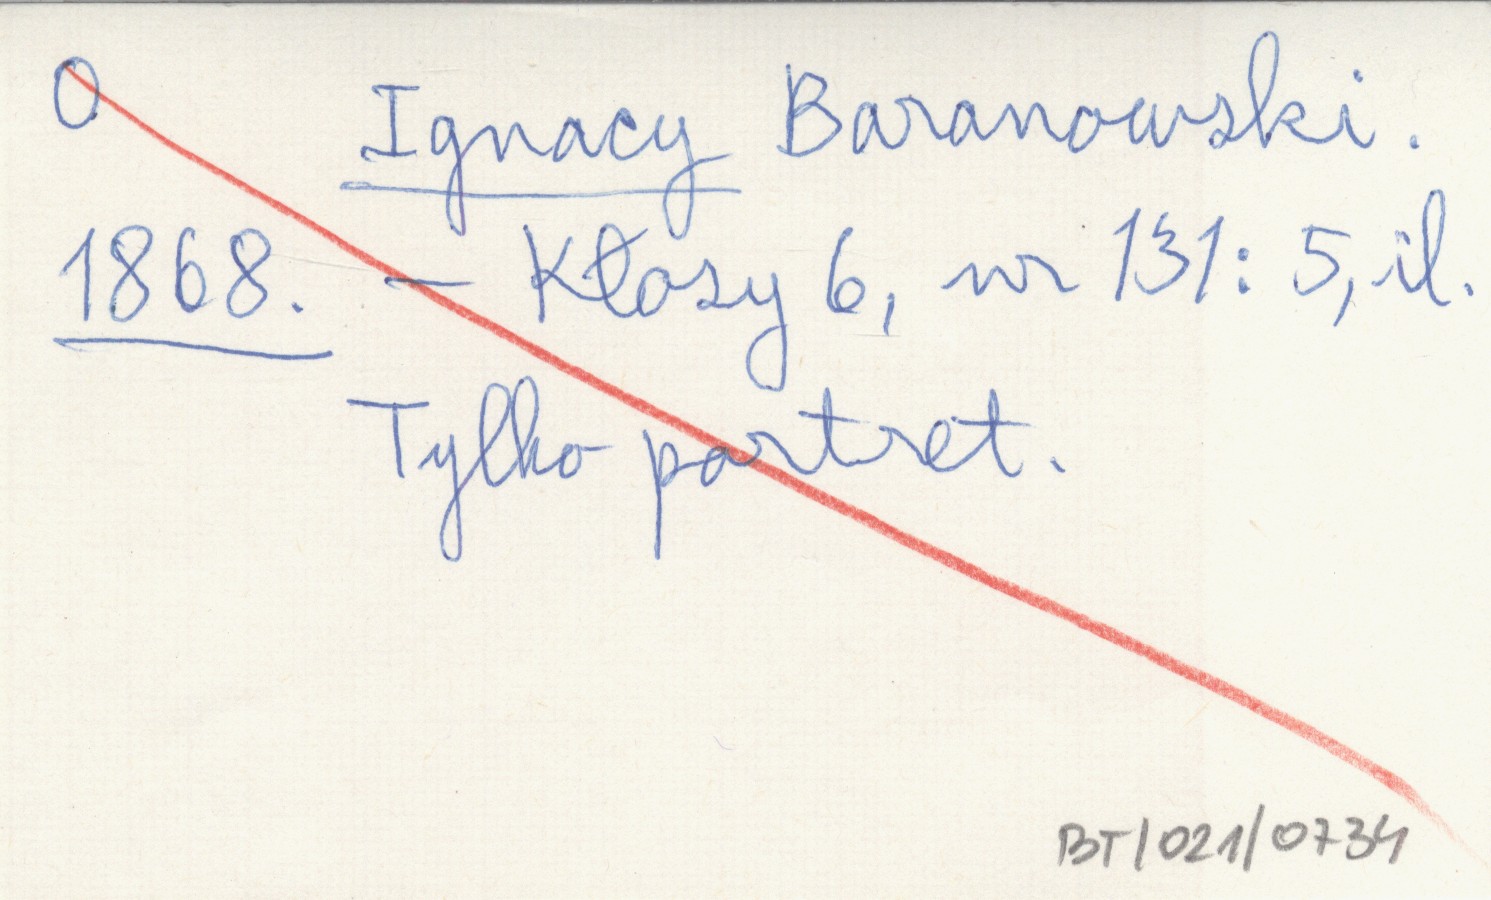 O Ignacy Baranowski.
1868. — Kłosy 6, nr 131: 5, il.
Tylko portret.
BT/021/0734